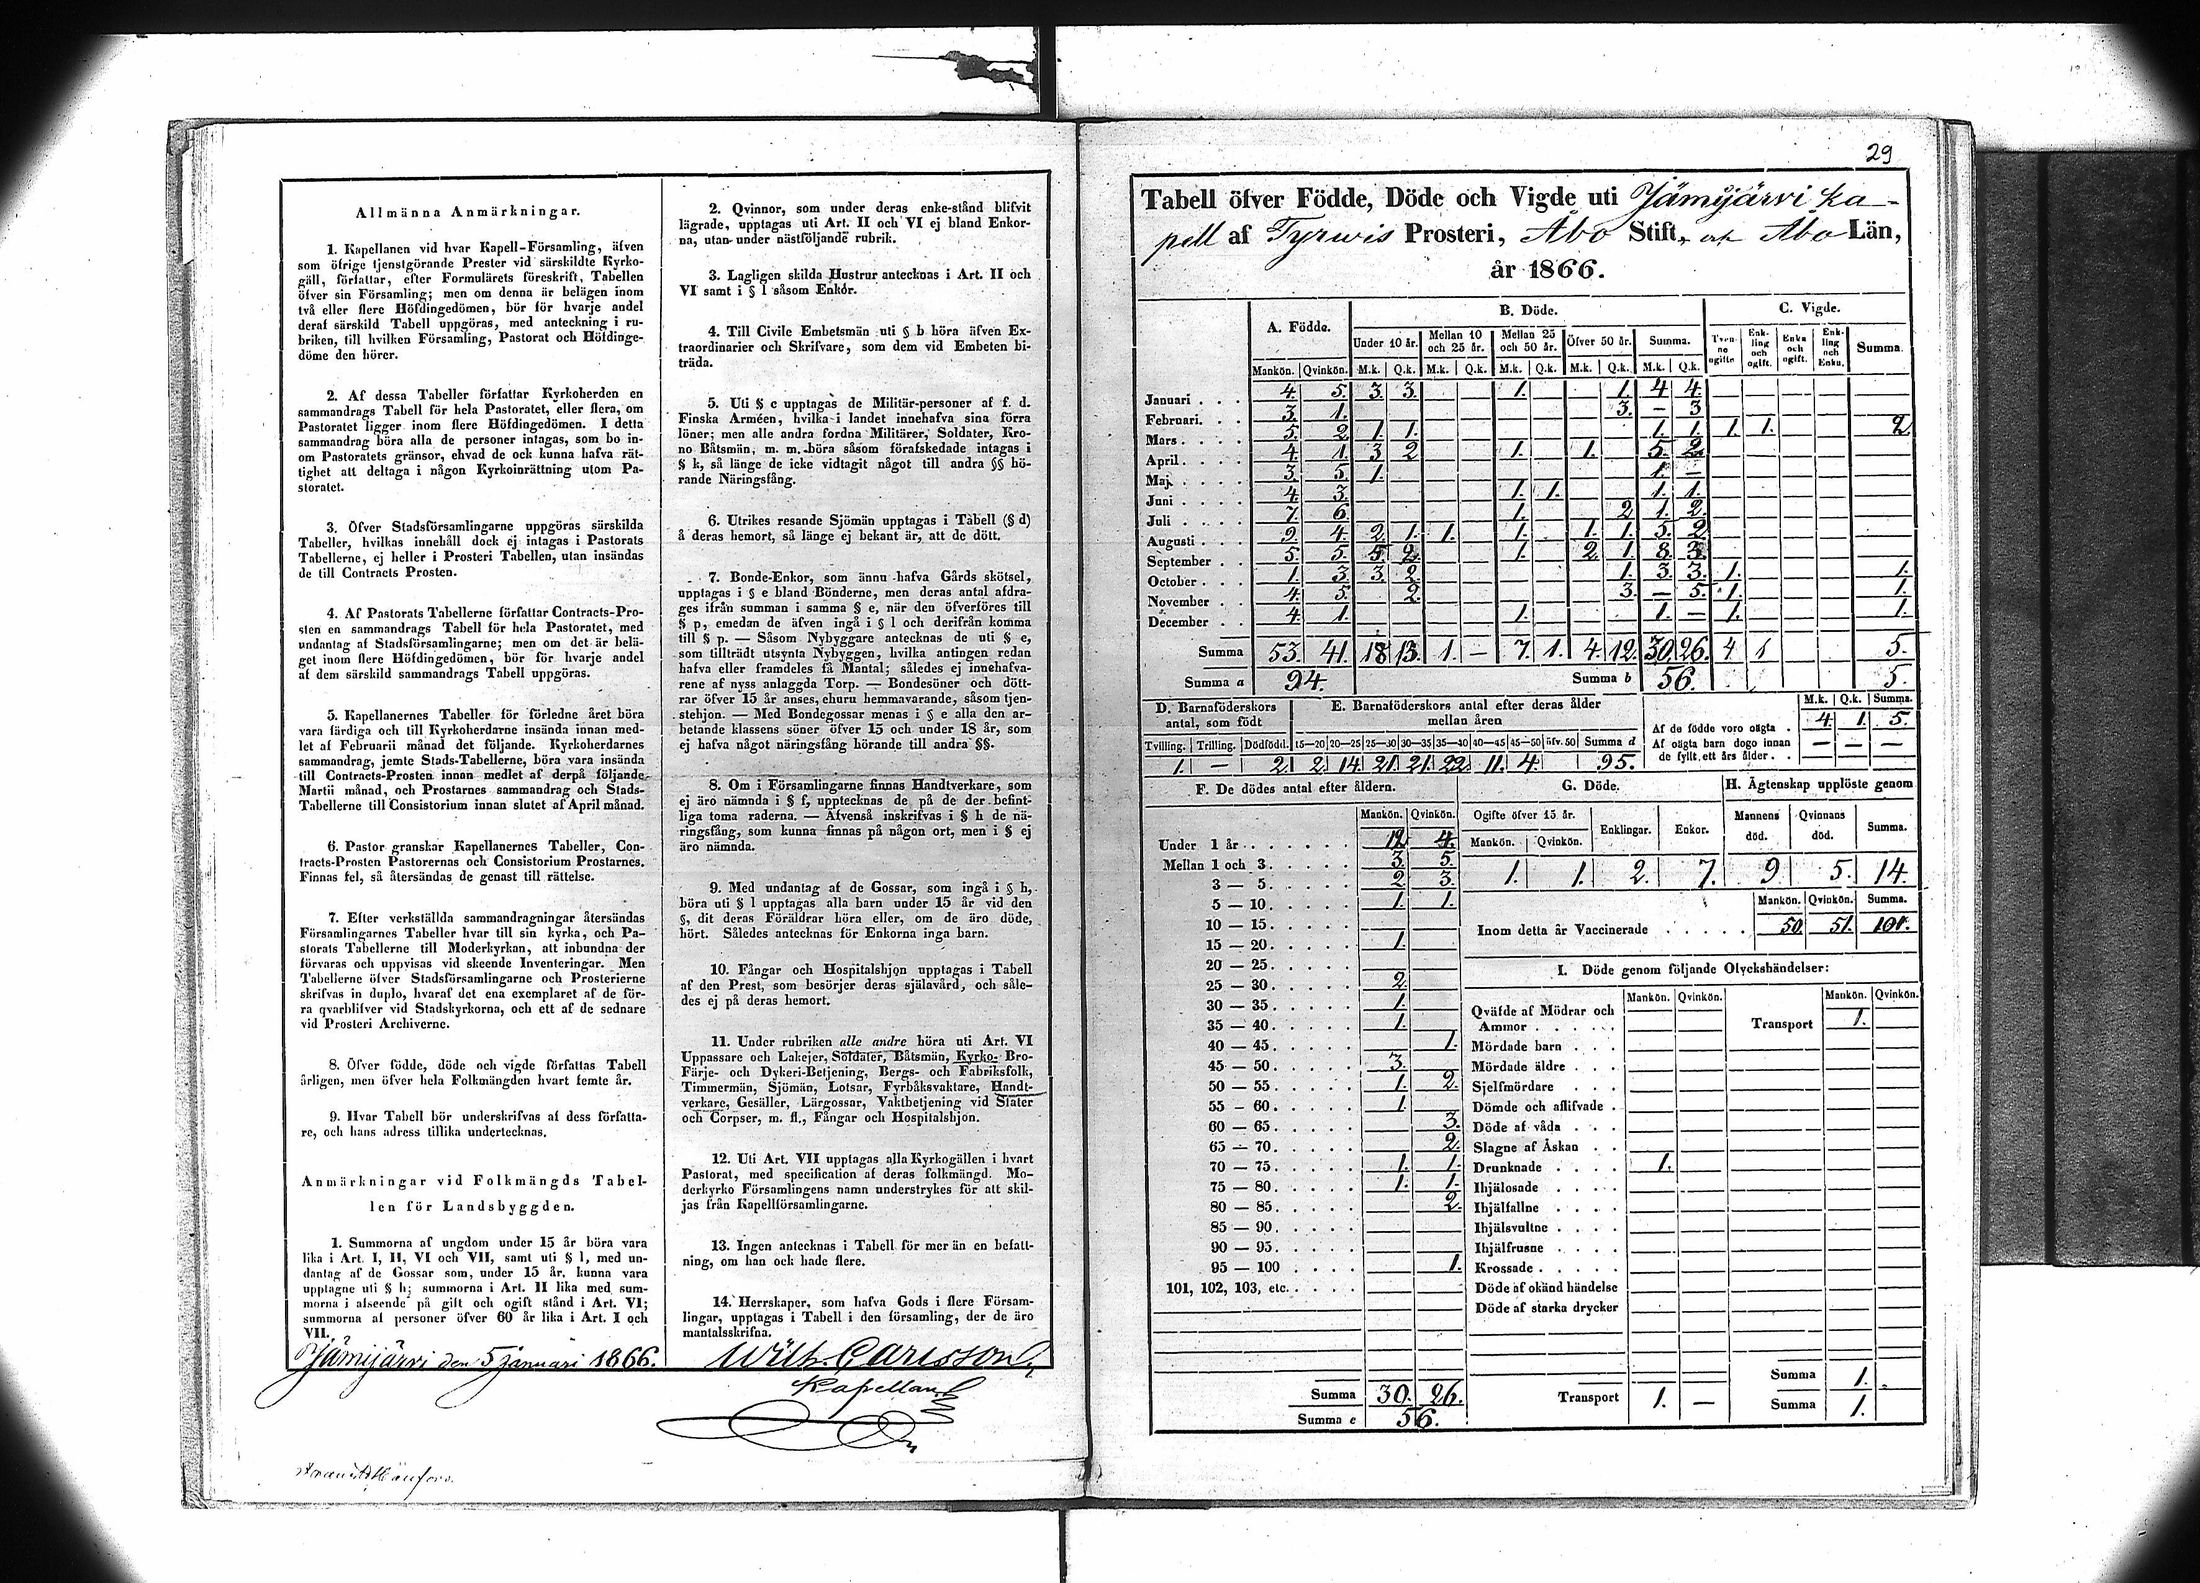 Allmänna Anmärkningar.
1. Kapellanen vid hvar Kapell-Församling, äfven
som öfrige tjenstgörande Prester vid särskildte Kyrko-
gäll, författar, efter Formulärets föreskrift, Tabellen
öfver sin Församling; men om denna är belägen inom
två eller flere Höfdingedömen, bör för hvarje andel
deraf särskild Tabell uppgöras, med anteckning i ru-
briken, till hvilken Församling, Pastorat och Höfdinge-
döme den hörer.
2. Af dessa Tabeller författar Kyrkoherden en
sammandrags Tabell för hela Pastoratet, eller flera, om
Pastoratet ligger inom flere Höfdingedömen. I detta
sammandrag böra alla de personer intagas, som bo in-
om Pastoratets gränsor, ehvad de ock kunna hafva rät-
tighet att deltaga i någon Kyrkoinrättning utom Pa-
storatet.
3. Öfver Stadsförsamlingarne uppgöras särskilda
Tabeller, hvilkas innehåll dock ej intagas i Pastorats
Tabellerne, ej heller i Prosteri Tabellen, utan insändas
de till Contracts Prosten.
4. Af Pastorats Tabellerne författar Contracts-Pro-
sten en sammandrags Tabell för hela Pastoratet, med
undantag af Stadsförsamlingarne; men om det är belä-
get inom flere Höfdingedömen, bör för hvarje andel
af dem särskild sammandrags Tabell uppgöras.
5. Kapellanernes Tabeller för förledne året böra
vara färdiga och till Kyrkoherdarne insända innan med-
let af Februarii månad det följande. Kyrkoherdarnes
sammandrag, jemte Stads-Tabellerne, böra vara insända
till Contracts-Prosten innan medlet af derpå följande
Martii månad, och Prostarnes sammandrag och Stads-
Tabellerne till Consistorium innan slutet af April månad.
6. Pastor granskar Kapellanernes Tabeller, Con-
tracts-Prosten Pastorernas och Consistorium Prostarnes.
Finnas fel, så återsändas de genast till rättelse.
7. Efter verkställda sammandragningar återsändas
Församlingarnes Tabeller hvar till sin kyrka, och Pa-
storats Tabellerne till Moderkyrkan, att inbundna der
förvaras och uppvisas vid skeende Inventeringar. Men
Tabellerne öfver Stadsförsamlingarne och Prosterierne
skrifvas in duplo, hvaraf det ena exemplaret af de för-
ra qvarblifver vid Stadskyrkorna, och ett af de sednare
vid Prosteri Archiverne.
8. Öfver födde, döde och vigde författas Tabell
årligen, men öfver hela Folkmängden hvart femte år.
9. Hvar Tabell bör underskrifvas af dess författa-
re, och hans adress tillika undertecknas.
Anmärkningar vid Folkmängds Tabel-
len för Landsbyggden.
1. Summorna af ungdom under 15 år böra vara
lika i Art. I, II, VI och VII, samt uti § 1, med un-
dantag af de Gossar som, under 15 år, kunna vara
upptagne uti § h; summorna i Art. II lika med sum-
morna i afseende på gift och ogift stånd i Art. VI;
summorna af personer öfver 60 år lika i Art. I och
VII.
Jämijärvi den 5 januari 1866.
2. Qvinnor, som under deras enke-stånd blifvit
lägrade, upptagas uti Art. II och VI ej bland Enkor-
na, utan under nästföljande rubrik.
3. Lagligen skilda Hustrur antecknas i Art. II och
VI samt i § 1 såsom Enkor.
4. Till Civile Embetsmän uti § b höra äfven Ex-
traordinarier och Skrifvare, som dem vid Embeten bi-
träda.
5. Uti § c upptagas de Militär-personer af f. d.
Finska Arméen, hvilka i landet innehafva sina förra
löner; men alle andra fordna Militärer, Soldater, Kro-
no Båtsmän, m. m. böra såsom förafskedade intagas i
§ k, så länge de icke vidtagit något till andra §§ hö-
rande Näringsfång.
6. Utrikes resande Sjömän upptagas i Tabell (§ d)
å deras hemort, så länge ej bekant är, att de dött.
7. Bonde-Enkor, som ännu hafva Gårds skötsel,
upptagas i § e bland Bönderne, men deras antal afdra-
ges ifrån summan i samma § e, när den öfverföres till
§ p, emedan de äfven ingå i § l och derifrån komma
till § p. — Såsom Nybyggare antecknas de uti § e,
som tillträdt utsynta Nybyggen, hvilka antingen redan
hafva eller framdeles få Mantal; således ej innehafva-
rene af nyss anlaggda Torp. — Bondesöner och dött-
rar öfver 15 år anses, ehuru hemmavarande, såsom tjen-
stehjon. — Med Bondegossar menas i § e alla den ar-
betande klassens söner öfver 15 och under 18 år, som
ej hafva något näringsfång hörande till andra §§.
8. Om i Församlingarne finnas Handtverkare, som
ej äro nämnda i § f, upptecknas de på de der befint-
liga toma raderna. — Äfvenså inskrifvas i § h de nä-
ringsfång, som kunna finnas på någon ort, men i § ej
äro nämnda.
9. Med undantag af de Gossar, som ingå i § h,
böra uti § l upptagas alla barn under 15 år vid den
§, dit deras Föräldrar höra eller, om de äro döde,
hört. Således antecknas för Enkorna inga barn.
10. Fångar och Hospitalshjon upptagas i Tabell
af den Prest, som besörjer deras själavård, och såle-
des ej på deras hemort.
11. Under rubriken alle andre höra uti Art. VI
Uppassare och Lakejer, Soldater, Båtsmän, Kyrko- Bro-
Färje- och Dykeri-Betjening, Bergs- och Fabriksfolk,
Timmermän, Sjömän, Lotsar, Fyrbåksvaktare, Handt-
verkare, Gesäller, Lärgossar, Vaktbetjening vid Släter
och Corpser, m. fl., Fångar och Hospitalshjon.
12. Uti Art. VII upptagas alla Kyrkogällen i hvart
Pastorat, med specification af deras folkmängd. Mo-
derkyrko Församlingens namn understrykes för att skil-
jas från Kapellförsamlingarne.
13. Ingen antecknas i Tabell för mer än en befatt-
ning, om han ock hade flere.
14. Herrskaper, som hafva Gods i flere Försam-
lingar, upptagas i Tabell i den församling, der de äro
mantalsskrifna.
Wilh. Carlsson
Kapellan
29
Tabell öfver Födde, Döde och Vigde uti Jämijärvi ka-
pell af Tyrwis Prosteri, Åbo Stift, och Åbo Län,
år 1866.
A. Födde. B. Döde. C. Vigde.
Under 10 år. Mellan 10 och 25 år. Mellan 25 och 50 år. Öfver 50 år. Summa. Tven- ne ogifte Enk- ling och ogift. Enka och ogift. Enk- ling och Enka. Summa.
Mankön. Qvinkön. M.k. Q.k. M.k. Q.k. M.k. Q.k. M.k. Q.k. M.k. Q.k.
Januari . . . 4. 5. 3. 3. 1. 1. 4. 4.
Februari. . . 3. 1. 3. — 3
Mars . . . . 5. 2. 1. 1. 1. 1. 1. 1. 2
April . . . . 4. 1. 3. 2 1. 1. 5. 2.
Maj . . . . 3. 5. 1. 1. —
Juni . . . . 4. 3. 1. 1. 1. 1.
Juli . . . . 7. 6. 1. 2 1. 2.
Augusti . . . 9. 4. 2. 1. 1. 1. 1. 1. 5. 2
September . . 5. 5. 5. 2. 1. 2. 1. 8. 3.
October . . . 1. 3. 3. 2. 1. 3. 3. 1. 1.
November . . 4. 5. 2. 3. — 5. 1. 1.
December . . 4. 1. 1. 1. — 1. 1.
Summa 53. 41. 18 13. 1. — 7. 1. 4. 12. 30. 26. 4 1 5.
Summa a 94. Summa b 56. 5.
D. Barnaföderskors antal, som födt
E. Barnaföderskors antal efter deras ålder mellan åren
M.k. Q.k. Summa.
Af de födde voro oägta . 4. 1. 5.
Af oägta barn dogo innan de fyllt ett års ålder . . — — —
Tvilling. Trilling. Dödfödd. 15—20 20—25 25—30 30—35 35—40 40—45 45—50 öfv. 50 Summa d
1. — 2. 2. 14. 21. 21. 22. 11. 4. 95.
F. De dödes antal efter åldern.
Mankön. Qvinkön.
Under 1 år . . . . . . 12 4.
Mellan 1 och 3 . . . . . 3. 5.
3 — 5 . . . . . 2. 3.
5 — 10 . . . . . 1. 1.
10 — 15 . . . . .
15 — 20 . . . . . 1.
20 — 25 . . . . .
25 — 30 . . . . . 2.
30 — 35 . . . . . 1.
35 — 40 . . . . . 1.
40 — 45 . . . . . 1.
45 — 50 . . . . . 3.
50 — 55 . . . . . 1. 2.
55 — 60 . . . . . 1.
60 — 65 . . . . . 3.
65 — 70 . . . . . 2.
70 — 75 . . . . . 1. 1.
75 — 80 . . . . . 1. 1.
80 — 85 . . . . . 2.
85 — 90 . . . . .
90 — 95 . . . . .
95 — 100 . . . . 1.
101, 102, 103, etc. . . . .
Summa 30. 26.
Summa c 56.
G. Döde.
Ogifte öfver 15 år. Enklingar. Enkor.
Mankön. Qvinkön.
1. 1. 2. 7.
H. Ägtenskap upplöste genom
Mannens död. Qvinnans död. Summa.
9 5. 14.
Mankön. Qvinkön. Summa.
Inom detta år Vaccinerade . . . . . 50. 51. 101.
I. Döde genom följande Olyckshändelser:
Mankön. Qvinkön. Mankön. Qvinkön.
Qväfde af Mödrar och
Ammor . . . . . Transport 1.
Mördade barn . . .
Mördade äldre . . .
Sjelfmördare . . .
Dömde och aflifvade .
Döde af våda . . .
Slagne af Åskan . .
Drunknade . . . . 1.
Ihjälosade . . . .
Ihjälfallne . . . .
Ihjälsvultne . . . .
Ihjälfrusne . . . .
Krossade . . . . .
Döde af okänd händelse
Döde af starka drycker
Summa 1.
Transport 1. — Summa 1.